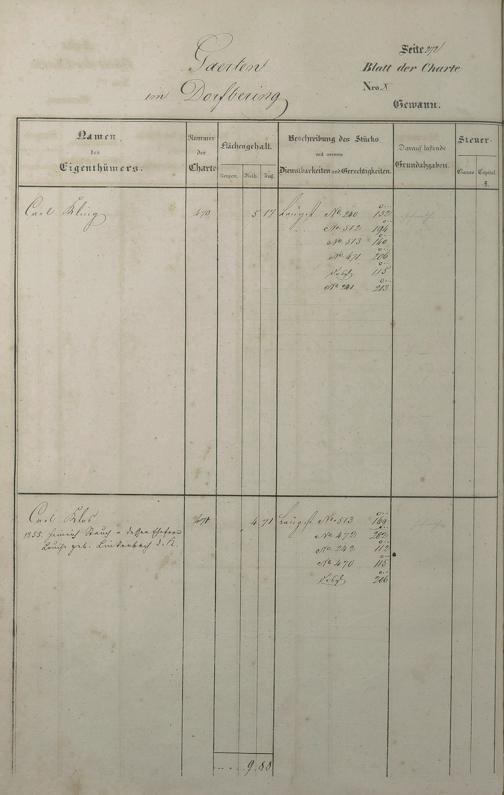 Gaerten
im Dorfbering
Seite 272
Blatt der Charte
Nro. X
Gewann.
Namen
des
Eigenthümers.
Nummer
der
Charte
Flächengehalt.
Morgen. Rtth. Fuß.
Beschreibung des Stücks
mit seinen
Dienstbarkeiten und Gerechtigkeiten.
Darauf haftende
Grundabgaben.
Steuer-
Ganze Capital
Carl Kling 470 5 17 Längst No 240 132
No 512 194
No 513 160
No 471 206
115
No 241 213
Carl Klos 471 4 71 Längst No 513 169
1855. Heinrich Stauch u dessen Ehefrau No 472 202
Louise geb. Lautenbach No 242 112
No 470 115
206
9.88